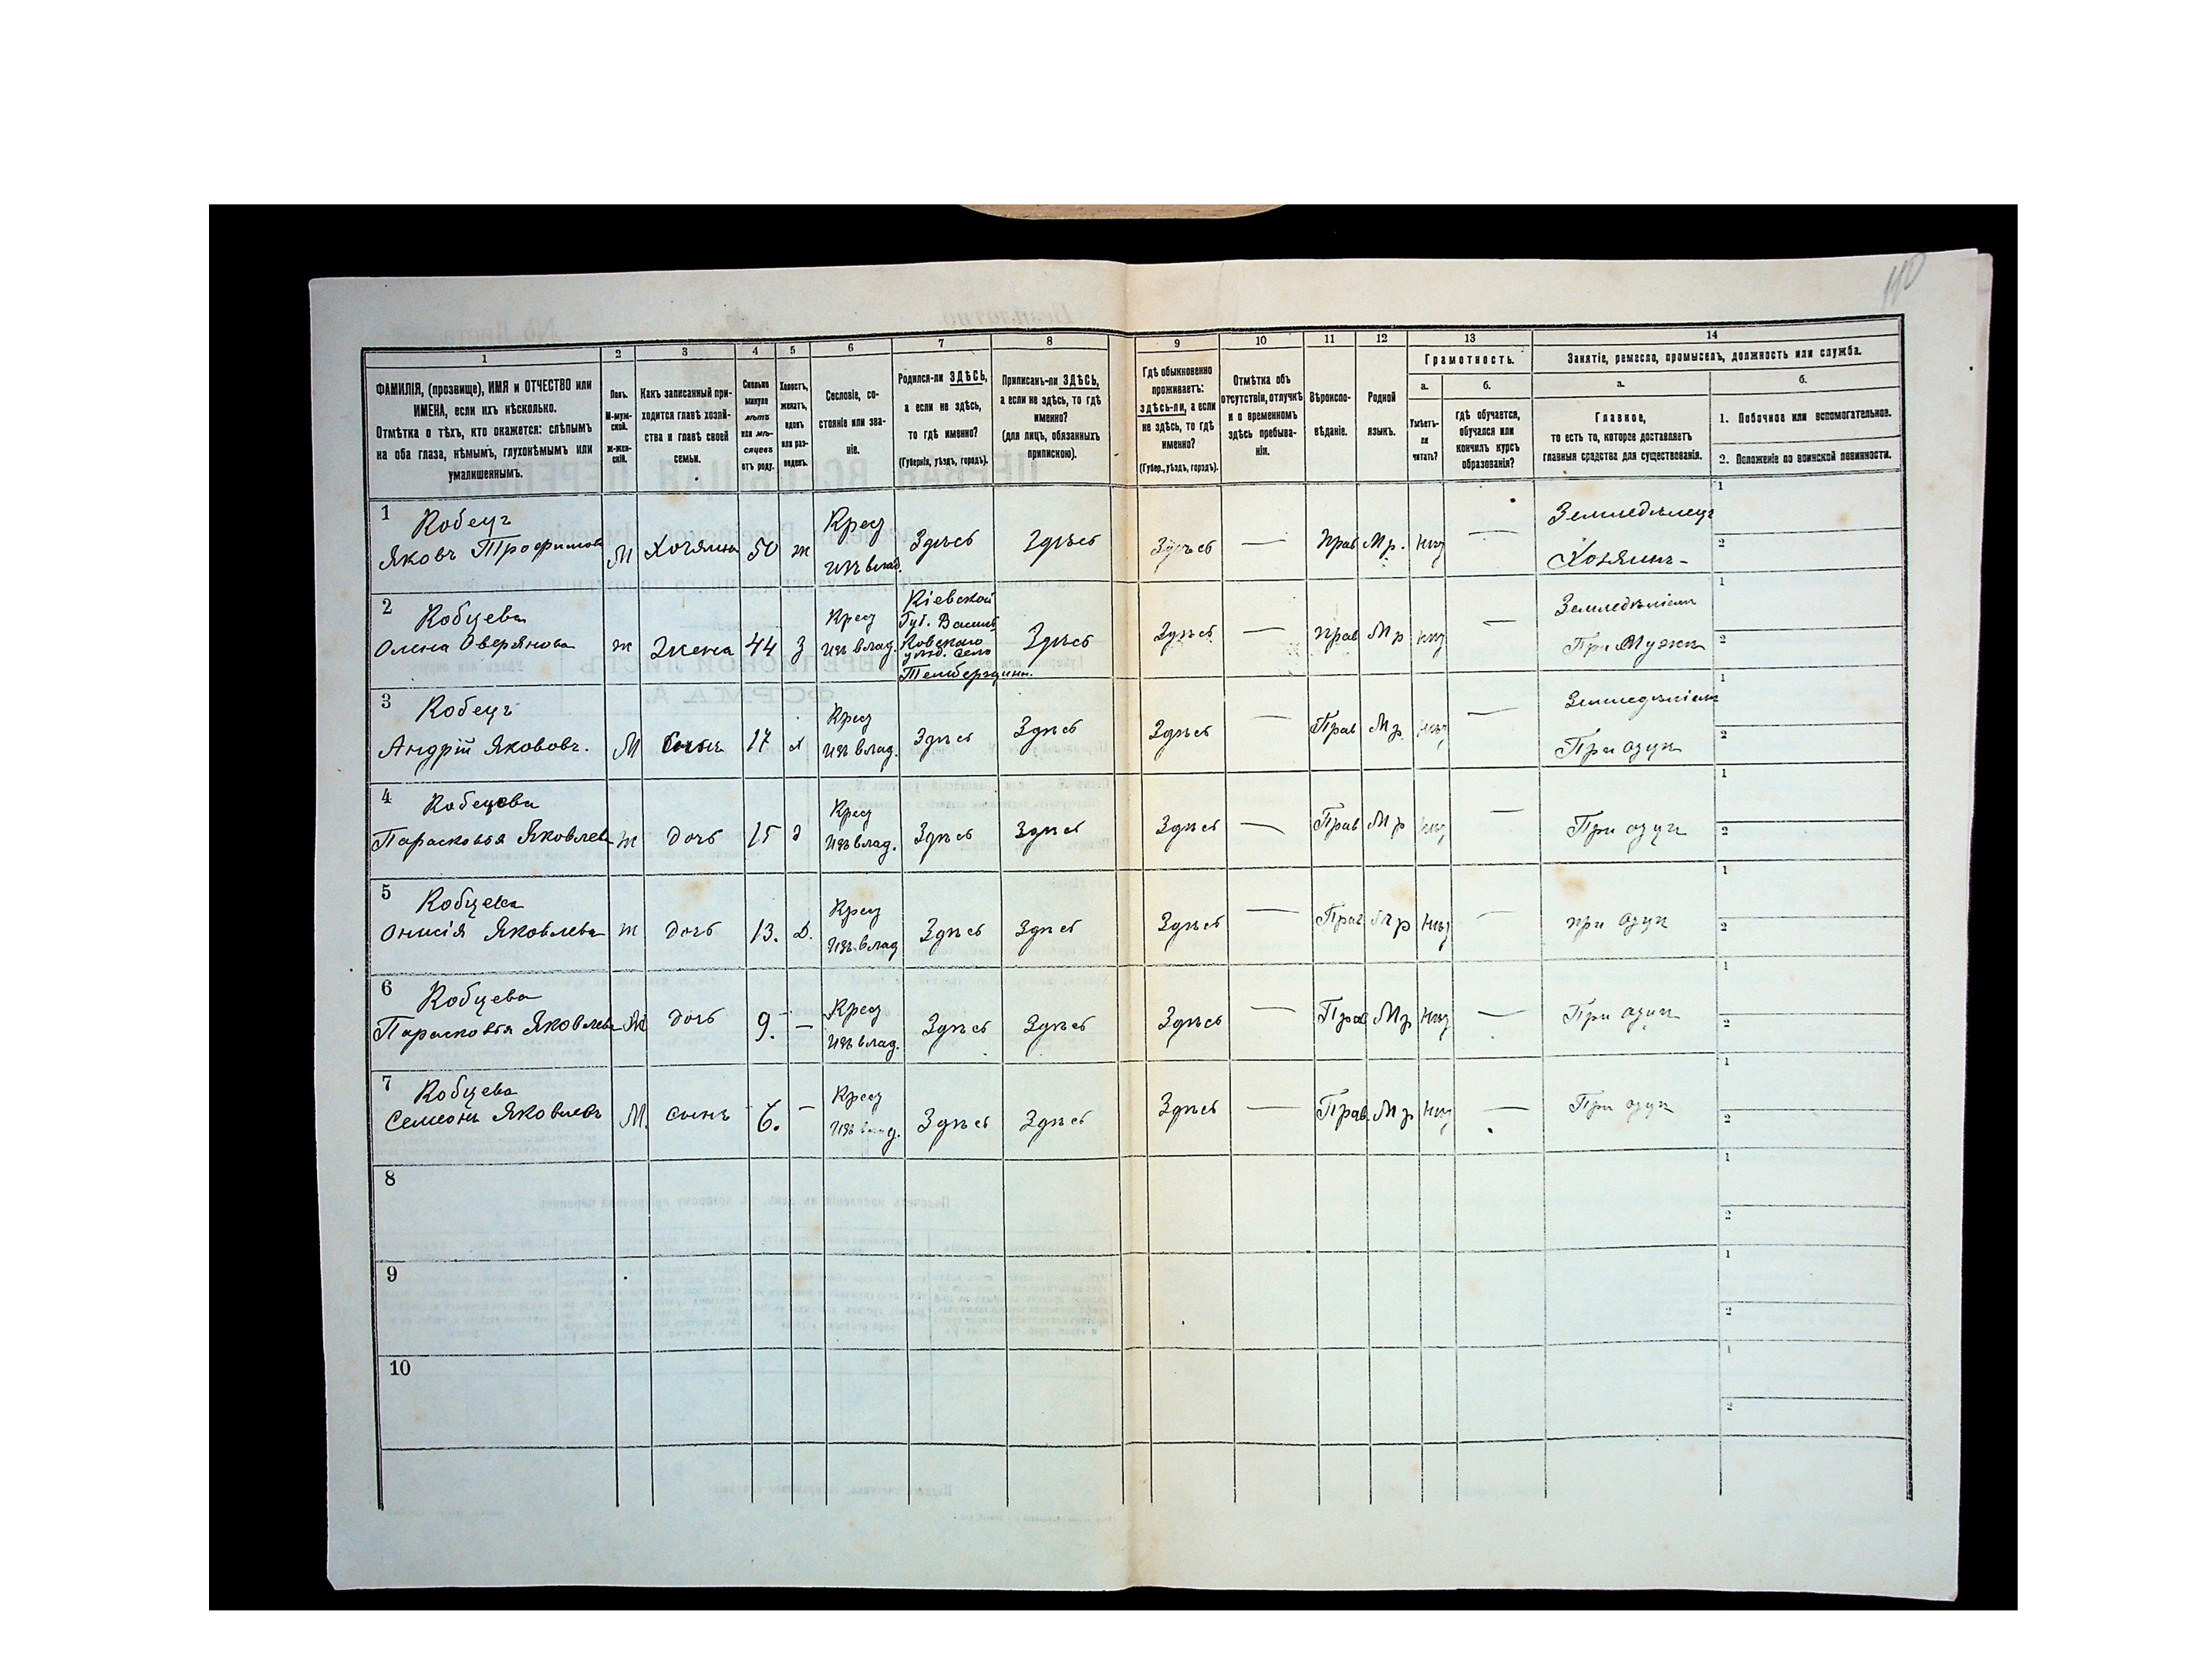 110
1 2 3 4 5 6 7 8 9 10 11 12 13 14
ФАМИЛІЯ, (прозвище), ИМЯ и ОТЧЕСТВО или
ИМЕНА, если ихъ нѣсколько.
Отмѣтка о тѣхъ, кто окажется: слѣпымъ
на оба глаза, нѣмымъ, глухонѣмымъ или
умалишеннымъ.
Полъ.
М-муж-
ской.
ж-жен-
скій.
Какъ записанный при-
ходится главѣ хозяй-
ства и главѣ своей
семьи.
Сколько
минуло
лѣтъ
или мѣ-
сяцевъ
отъ роду.
Холостъ,
женатъ,
вдовъ
или раз-
веденъ.
Сословіе, со-
стояніе или зва-
ніе.
Родился-ли ЗДѢСЬ,
а если не здѣсь,
то гдѣ именно?
(Губернія, уѣздъ, городъ).
Приписанъ-ли ЗДѢСЬ,
а если не здѣсь, то гдѣ
именно?
(для лицъ, обязанныхъ
припискою).
Гдѣ обыкновенно
проживаетъ:
здѣсь-ли, а если
не здѣсь, то гдѣ
именно?
(Губер., уѣздъ, городъ).
Отмѣтка объ
отсутствіи, отлучкѣ
и о временномъ
здѣсь пребыва-
ніи.
Вѣроиспо-
вѣданіе.
Родной
языкъ.
Грамотность.
а.
Умѣетъ-
ли
читать?
б.
гдѣ обучается,
обучался или
кончилъ курсъ
образованія?
Занятіе, ремесло, промыселъ, должность или служба.
а.
Главное,
то есть то, которое доставляетъ
главныя средства для существованія.
б.
1. Побочное или вспомогательное.
2. Положеніе по воинской повинности.
1 Кобецъ
Яковъ Трофимовъ М Хозяинъ 50 ж Крес изъ влад. Здѣсь Здѣсь Здѣсь — Прав Мр. нѣт — Земледѣлецъ
Хозяинъ - 1 2
2 Кобцева
Олена Оверянова ж Жена 44 З Крес изъ влад. Кіевской
Губ. Василь
ковского
уѣзд. село
Здѣсь Здѣсь — прав Мр нѣт — Земледѣліем
При Мужѣ 1 2
3 Кобецъ
Андрій Якововъ. М Сынъ 17 х Крес изъ влад. Здѣсь Здѣсь Здѣсь — Прав Мр. нѣт — Земледѣліем
При отцѣ 1 2
4 Кобецова
Парасковья Яковлева ж дочь 15 д Крес изъ влад. Здѣсь Здѣсь Здѣсь — Прав Мр нѣт — При отцѣ 1 2
5 Кобцева
Онисія Яковлева ж дочь 13. д. Крес изъ влад Здѣсь Здѣсь Здѣсь — Прав Мр нѣт — при отцѣ 1 2
6 Кобцева
Парасковья Яковлева Ж дочь 9. — Крес изъ влад. Здѣсь Здѣсь Здѣсь — Прав Мр нѣт — При отцѣ 1 2
7 Кобцева
Семеонъ Яковлевъ М. сынъ 6. — Крес изъ влад. Здѣсь Здѣсь Здѣсь — Прав. Мр нѣт — При отцѣ 1 2
8 1 2
9 1 2
10 1 2